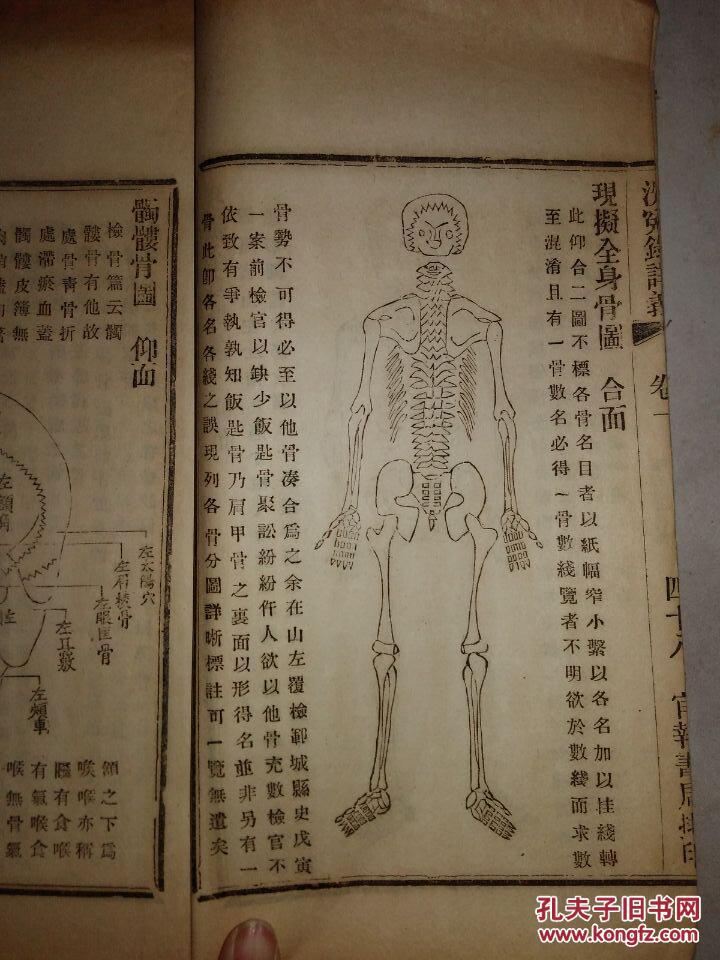 洗冤錄詳義
卷一
四十八
官報書局排印
現擬全身骨圖 合面
此仰合二圖不標各骨名目者以紙幅窄小繫以各名加以挂綫轉
至混淆且有一骨數名必得一骨數綫覽者不明欲於數綫而求數
骨勢不可得必至以他骨凑合爲之余在山左覆檢鄆城縣史戊寅
一案前檢官以缺少飯匙骨聚訟紛紛仵人欲以他骨充數檢官不
依致有爭執孰知飯匙骨乃肩甲骨之裏面以形得名並非另有一
骨此卽各名各綫之誤現列各骨分圖詳晰標註可一覽無遺矣
髑髏骨圖 仰面
檢骨篇云髑
髏骨有他故
處骨靑骨折
處滯瘀血蓋
髑髏皮簿無
左太陽穴
左眉棱骨
左眼匡骨
左耳竅
左頰車
左額角
頷之下爲
喉亦稱
有食喉
有氣喉食
喉無骨氣
孔夫子旧书网
www.kongfz.com